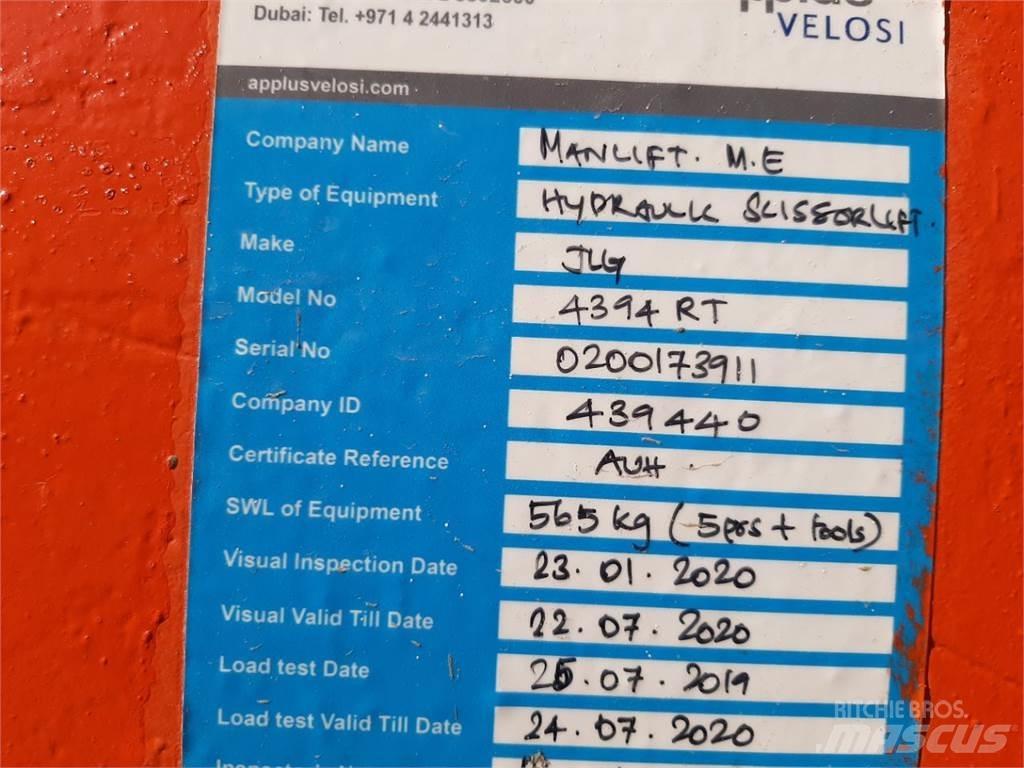 Dubai: Tel. +971 4 2441313
VELOSI
applusvelosi.com
Company Name MANLIFT. M.E
Type of Equipment HYDRAULIC SCISSORLIFT.
Make JLG
Model No 4394 RT
Serial No 0200173911
Company ID 439440
Certificate Reference AUH
SWL of Equipment 565 kg (5prs + tools)
Visual Inspection Date 23.01.2020
Visual Valid Till Date 22.07.2020
Load test Date 25.07.2019
Load test Valid Till Date 24.07.2020
RITCHIE BROS.
mascus